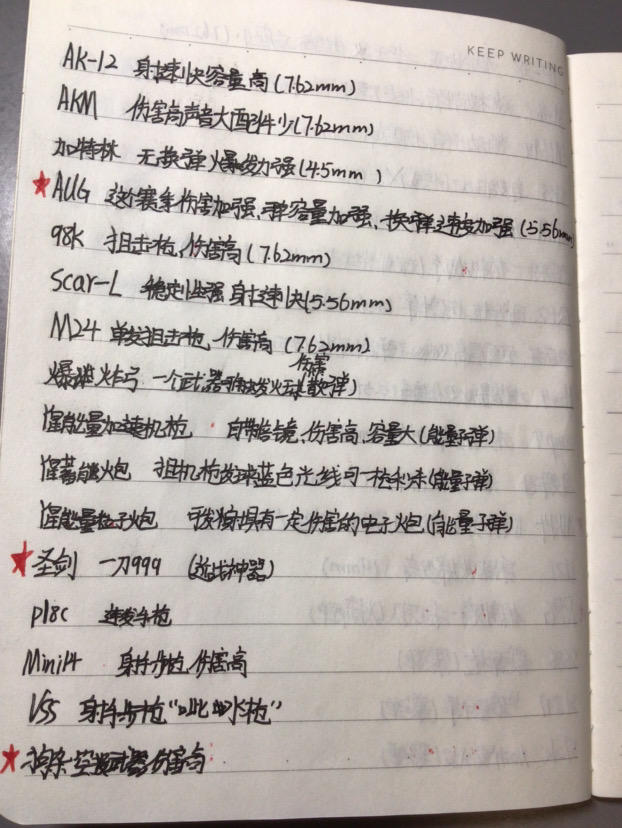 KEEP WRITING
AK-12 射速快容量高(7.62mm)
AKM 伤害高声音大配件少(7.62mm)
加特林 无换弹爆发力强(4.5mm)
★AUG 这赛季伤害加强,弹容量加强,换弹速度加强(5.56mm
98K 狙击枪,伤害高(7.62mm)
Scar-L 稳定性强射速快(5.56mm)
M24 单发狙击枪,伤害高(7.62mm)
伤害
一个武器 发火球 散弹)
能量加速机枪 自带倍镜,伤害高,容量大(能量子弹)
蓄能火炮 狙机枪发球蓝色光线可一枪秒杀(能量子弹)
能量粒子火炮 可发射具有一定伤害的电子火炮(能量子弹)
★圣剑 一刀999 (近战神器)
P18C 连发手枪
Mini14 射手步枪,伤害高
VSS 射手步枪“呲水枪”
★ 空投武器伤害高